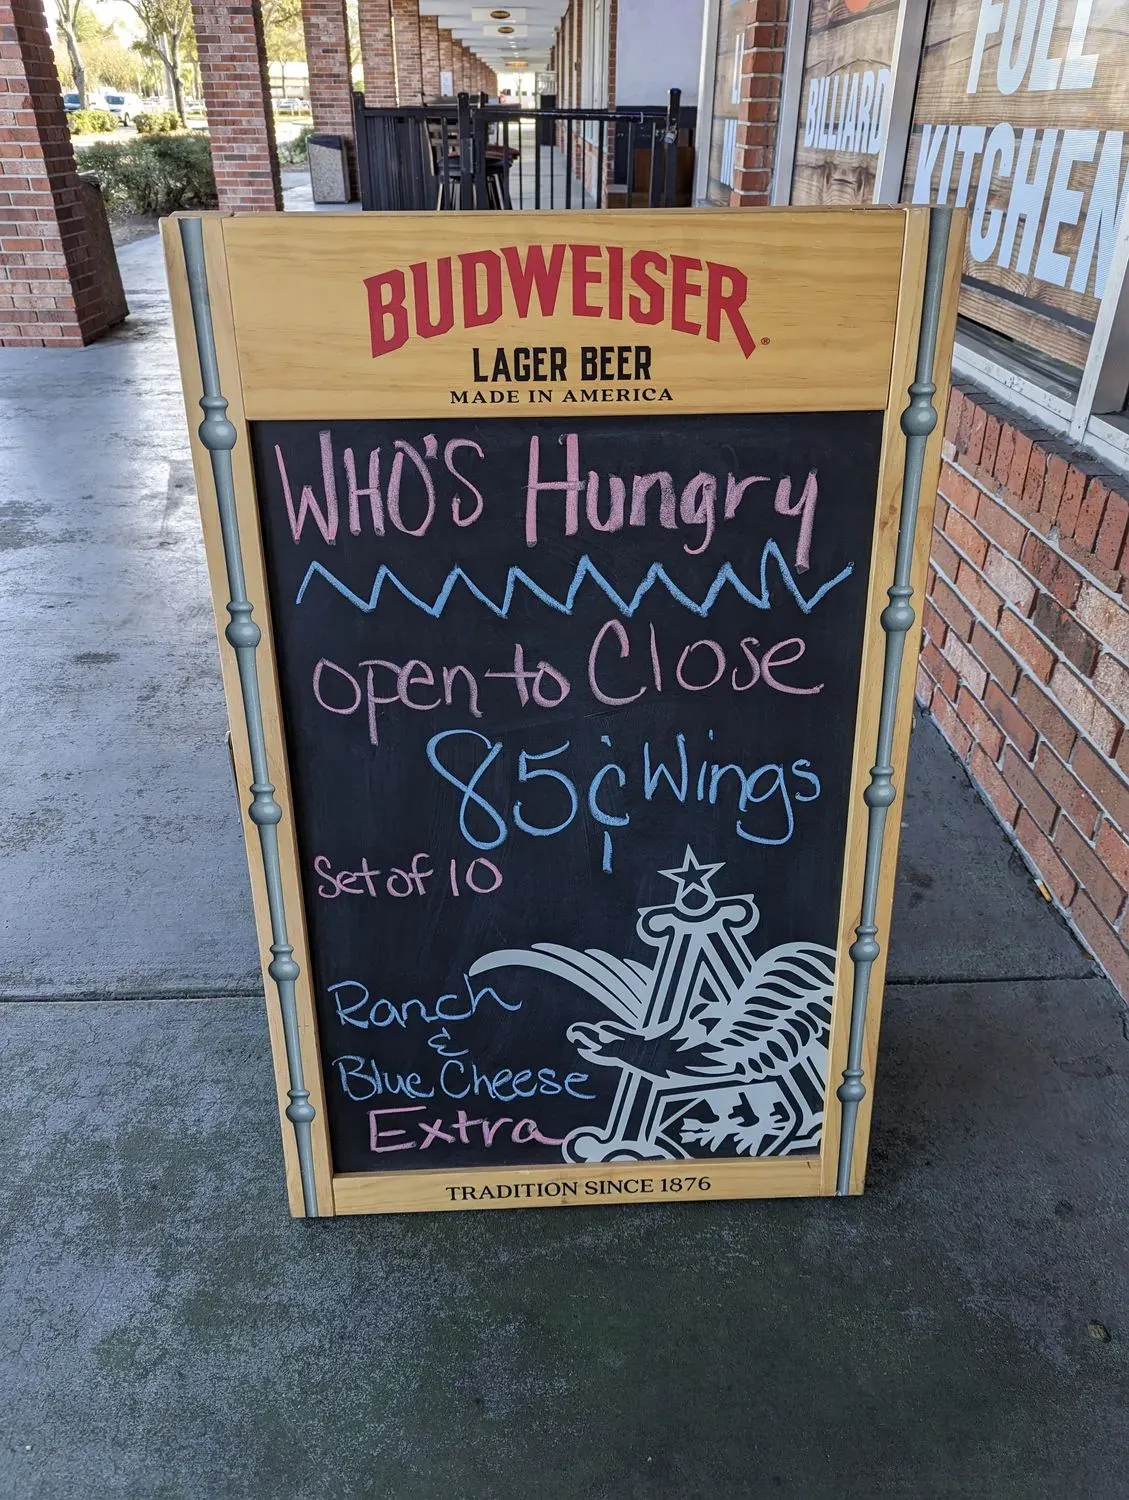 FULL
KITCHEN
BILLIARD
BUDWEISER®
LAGER BEER
MADE IN AMERICA
WHO'S Hungry
open to Close
85¢ Wings
Set of 10
Ranch
&
Blue Cheese
Extra
A
TRADITION SINCE 1876